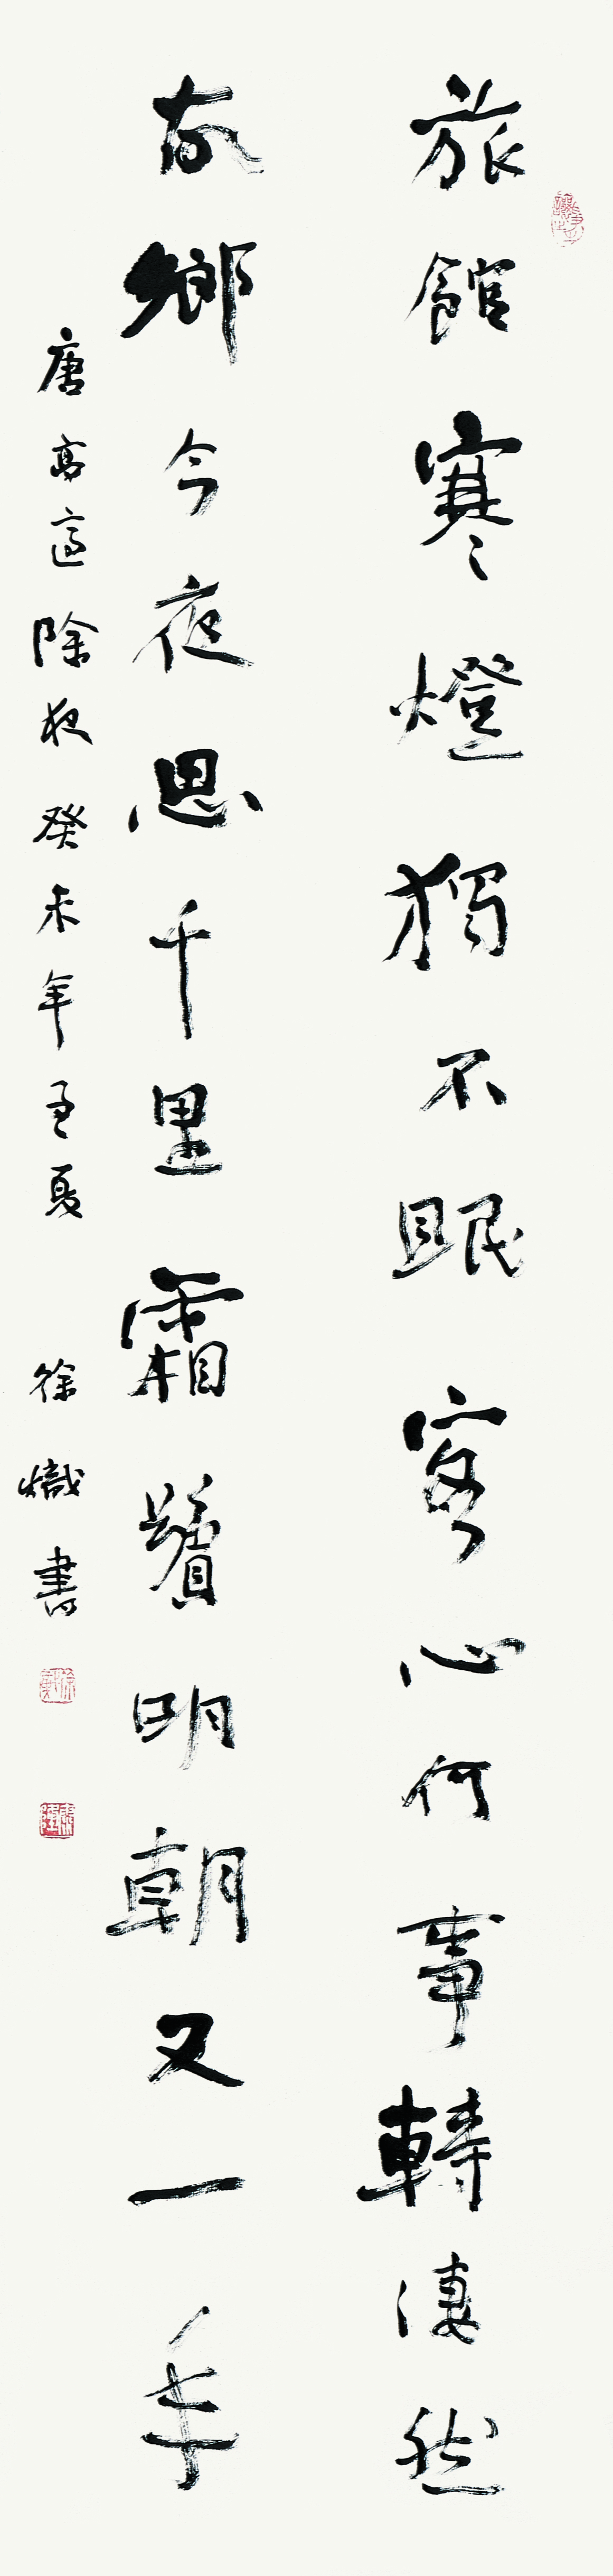 旅館寒燈獨不眠客心何事轉凄然
故鄉今夜思千里霜鬢明朝又一年
唐高適除夜癸未年孟夏 徐熾書